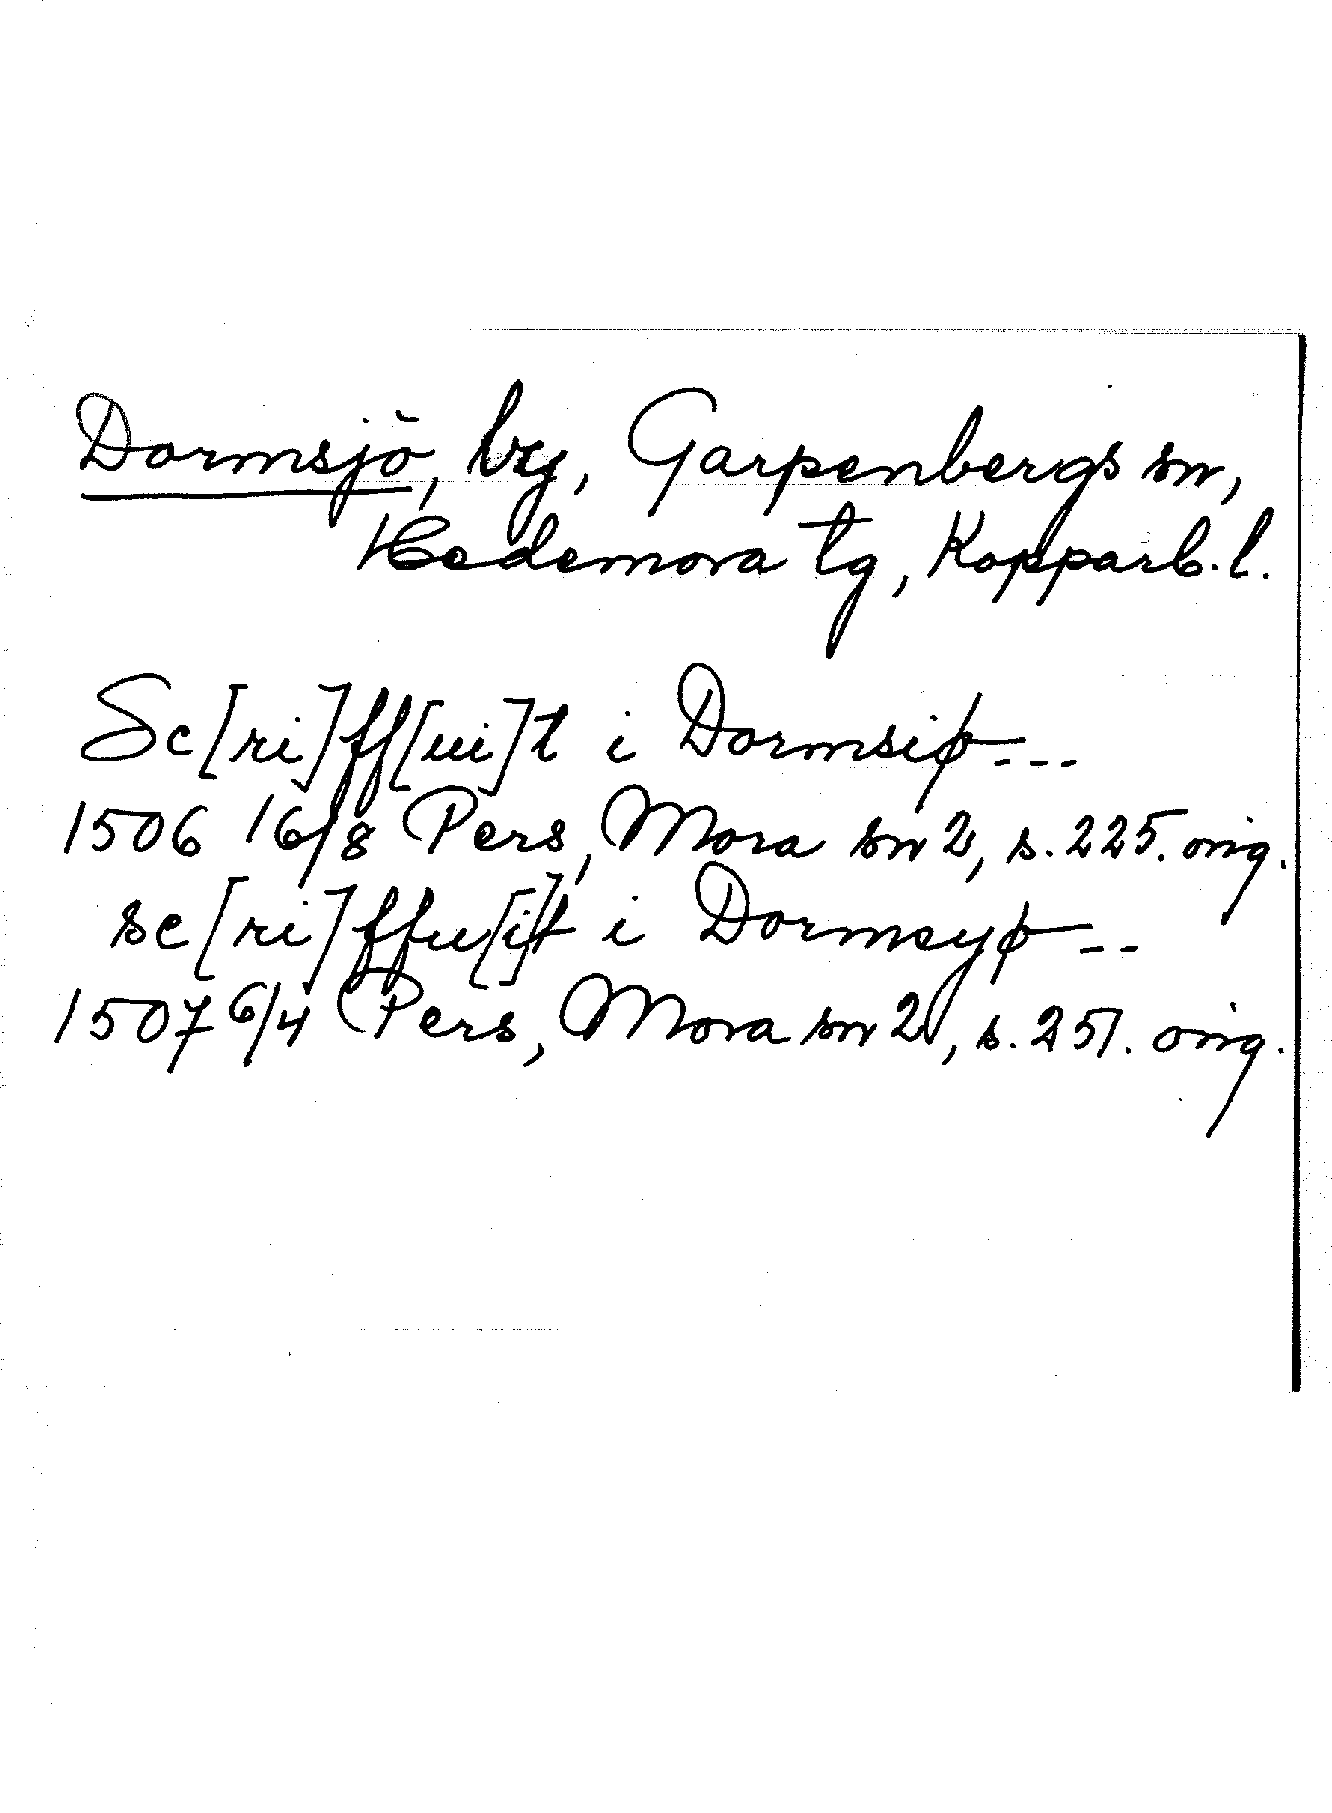 Dormsjö, by, Garpenbergs sn,
Hedemora tg, Kopparb. l.
Sc[ri]ff[ui]t i Dormsiø ---
1506 16/8 Pers, Mora sn 2, s. 225. orig.
sc[ri]ffu[i]t i Dormsyø --
1507 6/4 Pers, Mora sn 2, s. 251. orig.